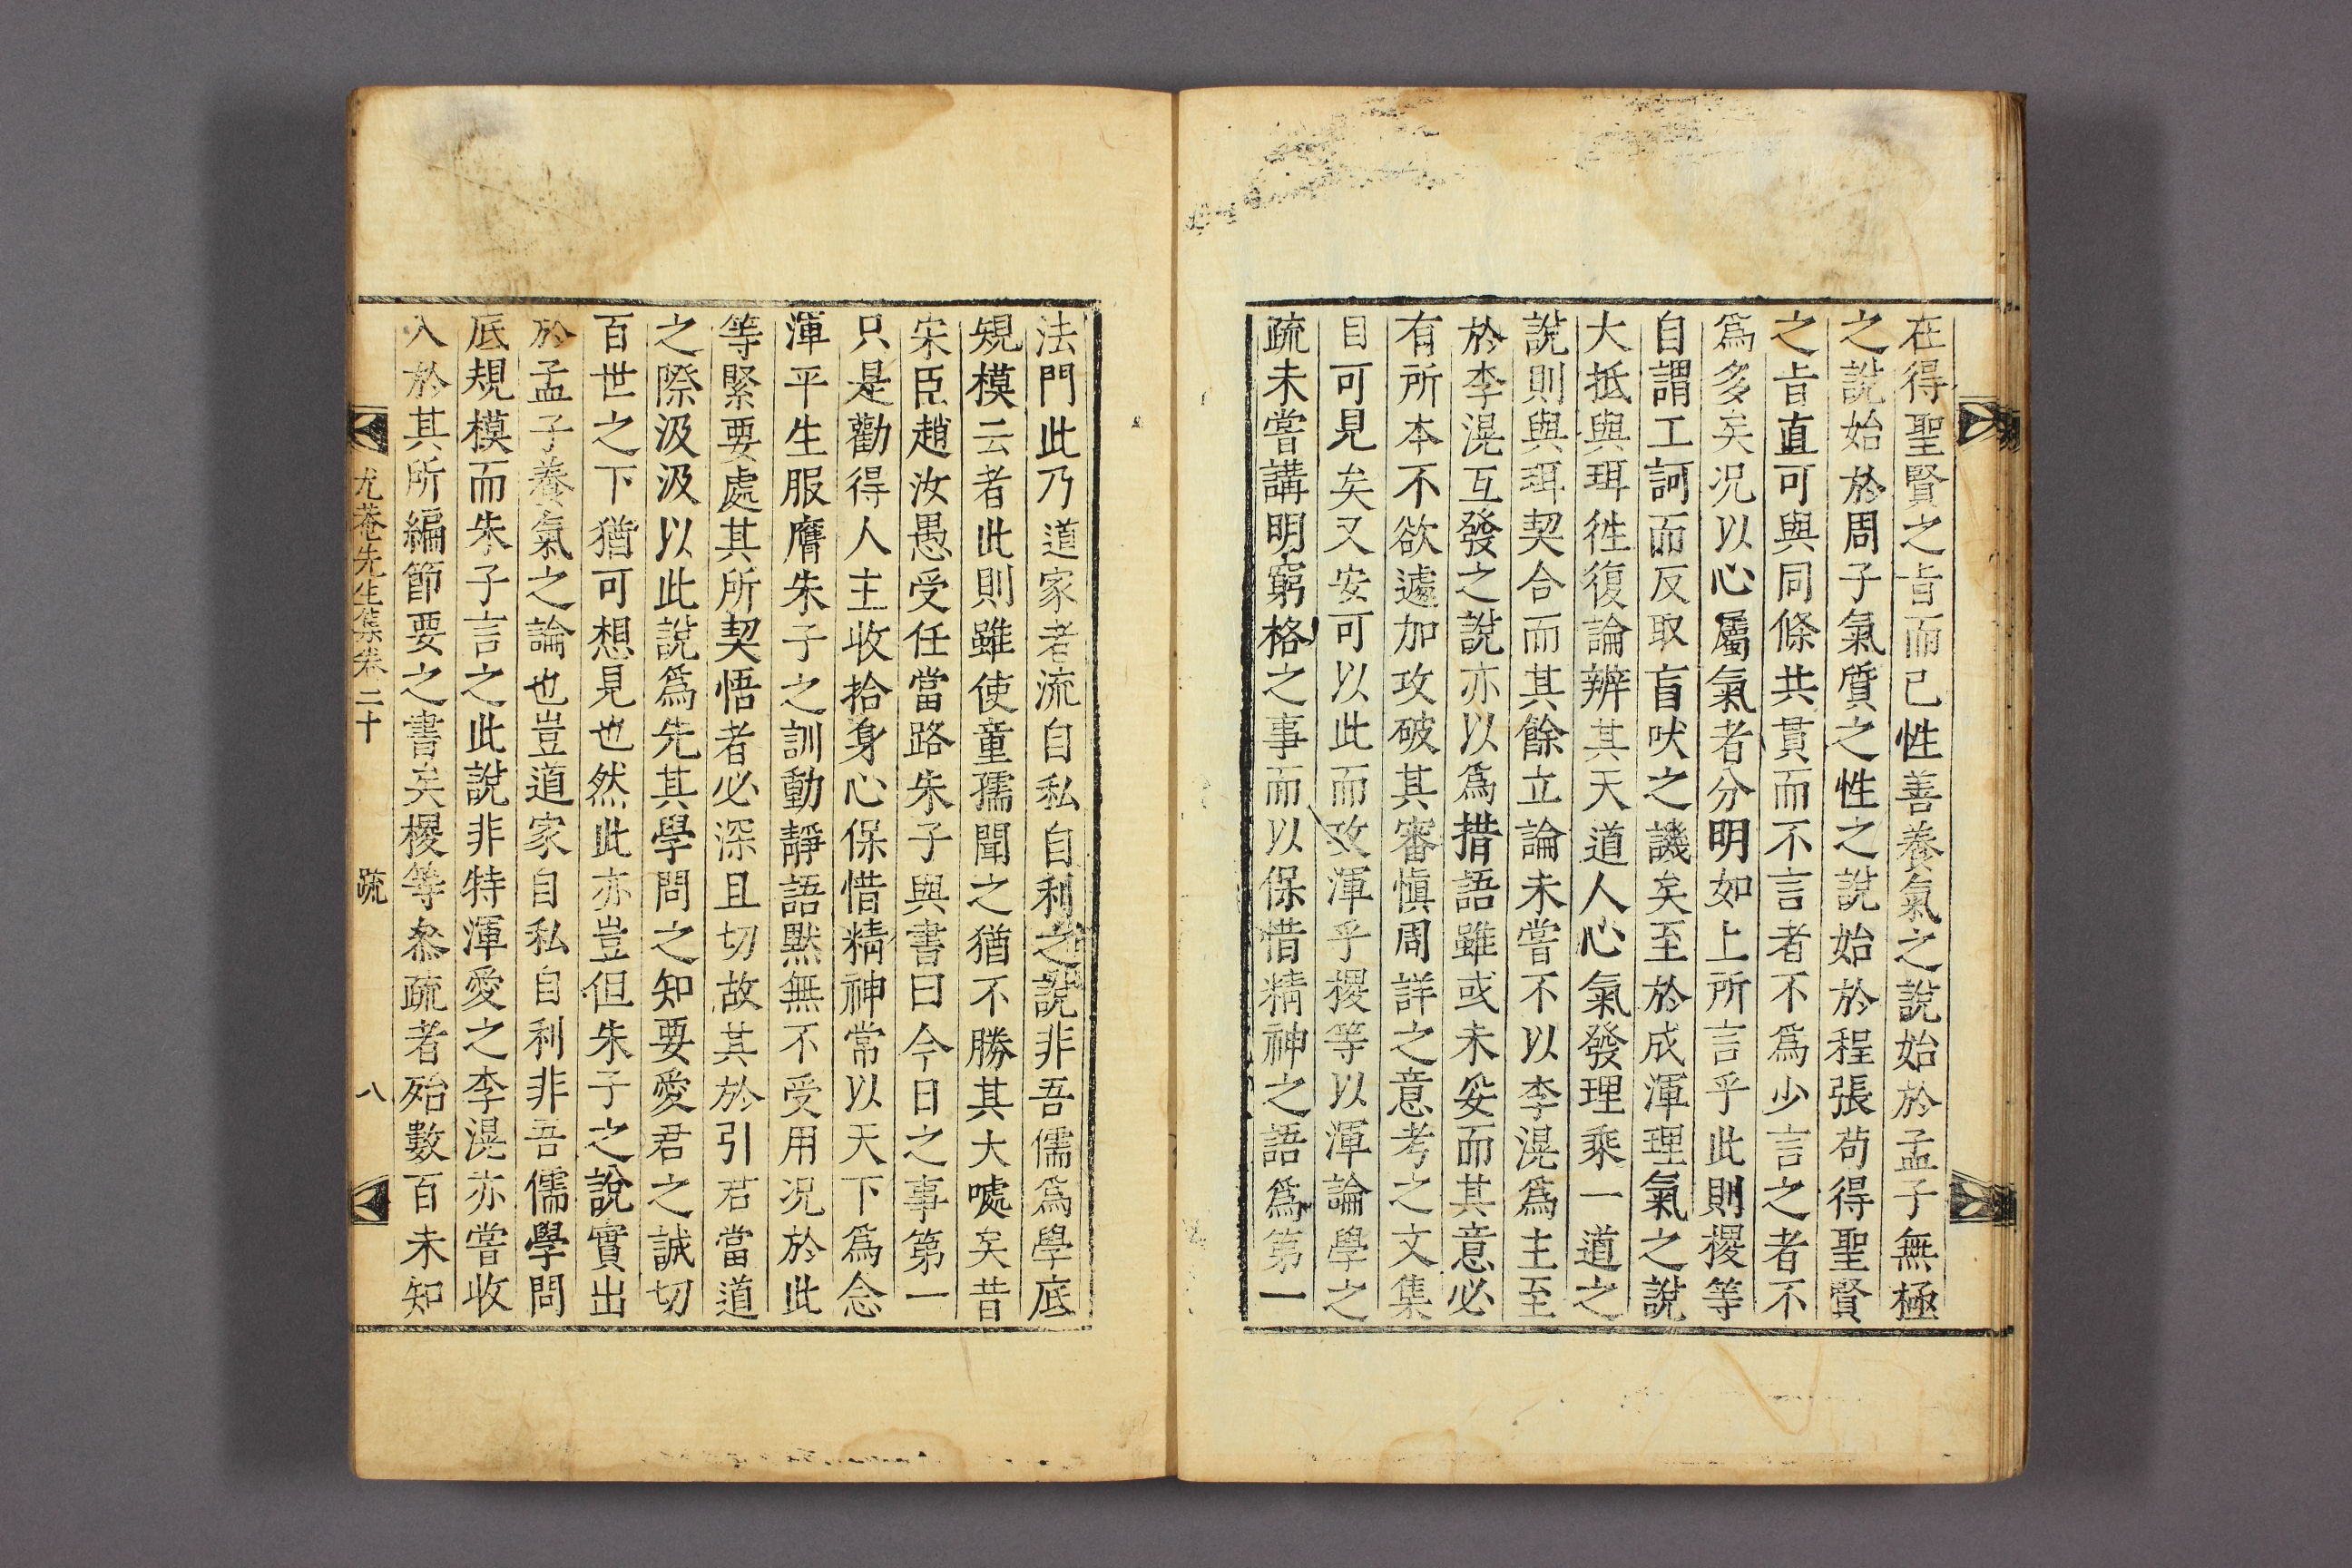 在得聖賢之旨而已性善養氣之說始於孟子無極
之說始於周子氣質之性之說始於程張苟得聖賢
之旨直可與同條共貫而不言者不爲少言之者不
爲多矣况以心屬氣者分明如上所言乎此則㮨等
自謂工訶而反取盲吠之譏矣至於成渾理氣之說
大抵與珥徃復論辨其天道人心氣發理乘一道之
說則與珥契合而其餘立論未嘗不以李滉爲主至
於李滉互發之說亦以爲措語雖或未妥而其意必
有所本不欲遽加攻破其審愼周詳之意考之文集
目可見矣又安可以此而攻渾乎㮨等以渾論學之
疏未嘗講明窮格之事而以保惜精神之語爲第一
法門此乃道家者流自私自利之說非吾儒爲學底
䂓模云者此則雖使童孺聞之猶不勝其大噱矣昔
宋臣趙汝愚受任當路朱子與書曰今日之事第一
只是勸得人主收拾身心保惜精神常以天下爲念
渾平生服膺朱子之訓動靜語默無不受用况於此
等緊要處其所契悟者必深且切故其於引君當道
之際汲汲以此說爲先其學問之知要愛君之誠切
百世之下猶可想見也然此亦豈但朱子之說實出
於孟子養氣之論也豈道家自私自利非吾儒學問
底規模而朱子言之此說非特渾愛之李滉亦嘗收
入於其所編節要之書矣㮨等叅疏者殆數百未知
尤菴先生集卷二十 疏 八